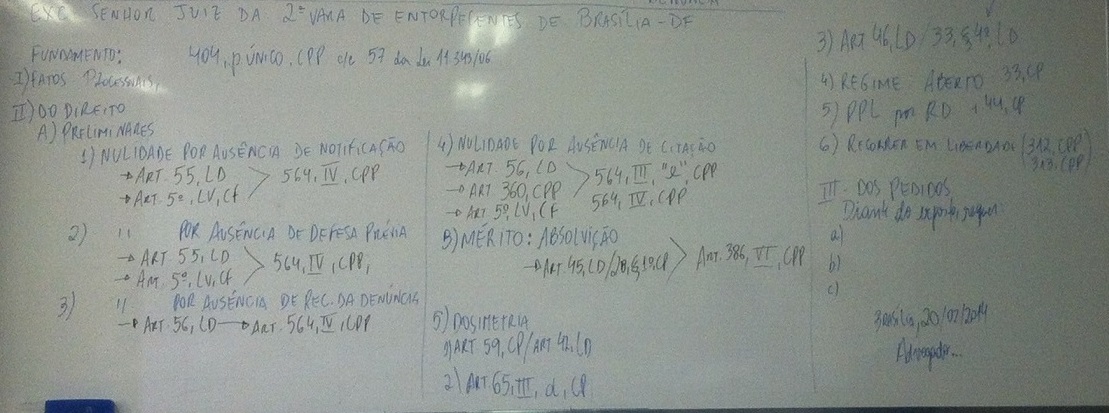 EXC. SENHOR JUIZ DA 2ª VARA DE ENTORPECENTES DE BRASÍLIA-DF
FUNDAMENTO: 404, p ÚNICO, CPP c/c 57 da Lei 11.343/06
I) FATOS PROCESSUAIS,
II) DO DIREITO
A) PRELIMINARES
1) NULIDADE POR AUSÊNCIA DE NOTIFICAÇÃO
→ ART. 55, LD
→ ART. 5º, LV, CF
> 564, IV, CPP
2) " POR AUSÊNCIA DE DEFESA PRÉVIA
→ ART. 55, LD
→ ART. 5º, LV, CF
> 564, IV, CPP,
3) " POR AUSÊNCIA DE REC. DA DENÚNCIA
→ ART. 56, LD → ART. 564, IV, CPP
4) NULIDADE POR AUSÊNCIA DE CITAÇÃO
→ ART. 56, LD
→ ART. 360, CPP
→ ART. 5º, LV, CF
> 564, III, "e", CPP
564, IV, CPP
B) MÉRITO: ABSOLVIÇÃO
→ ART. 45, LD/28, § 1º, CP > ART. 386, VI, CPP
5) DOSIMETRIA
1) ART. 59, CP/ART 42, LD
2) ART. 65, III, d, CP
3) ART 46, LD / 33, § 4º, LD
4) REGIME ABERTO 33, CP
5) PPL por RD 44, CP
6) RECORRER EM LIBERDADE (312, CPP
313, CPP)
III - DOS PEDIDOS
Diante do exposto, requer:
a)
b)
c)
Brasília, 20/02/2014
Advogado...